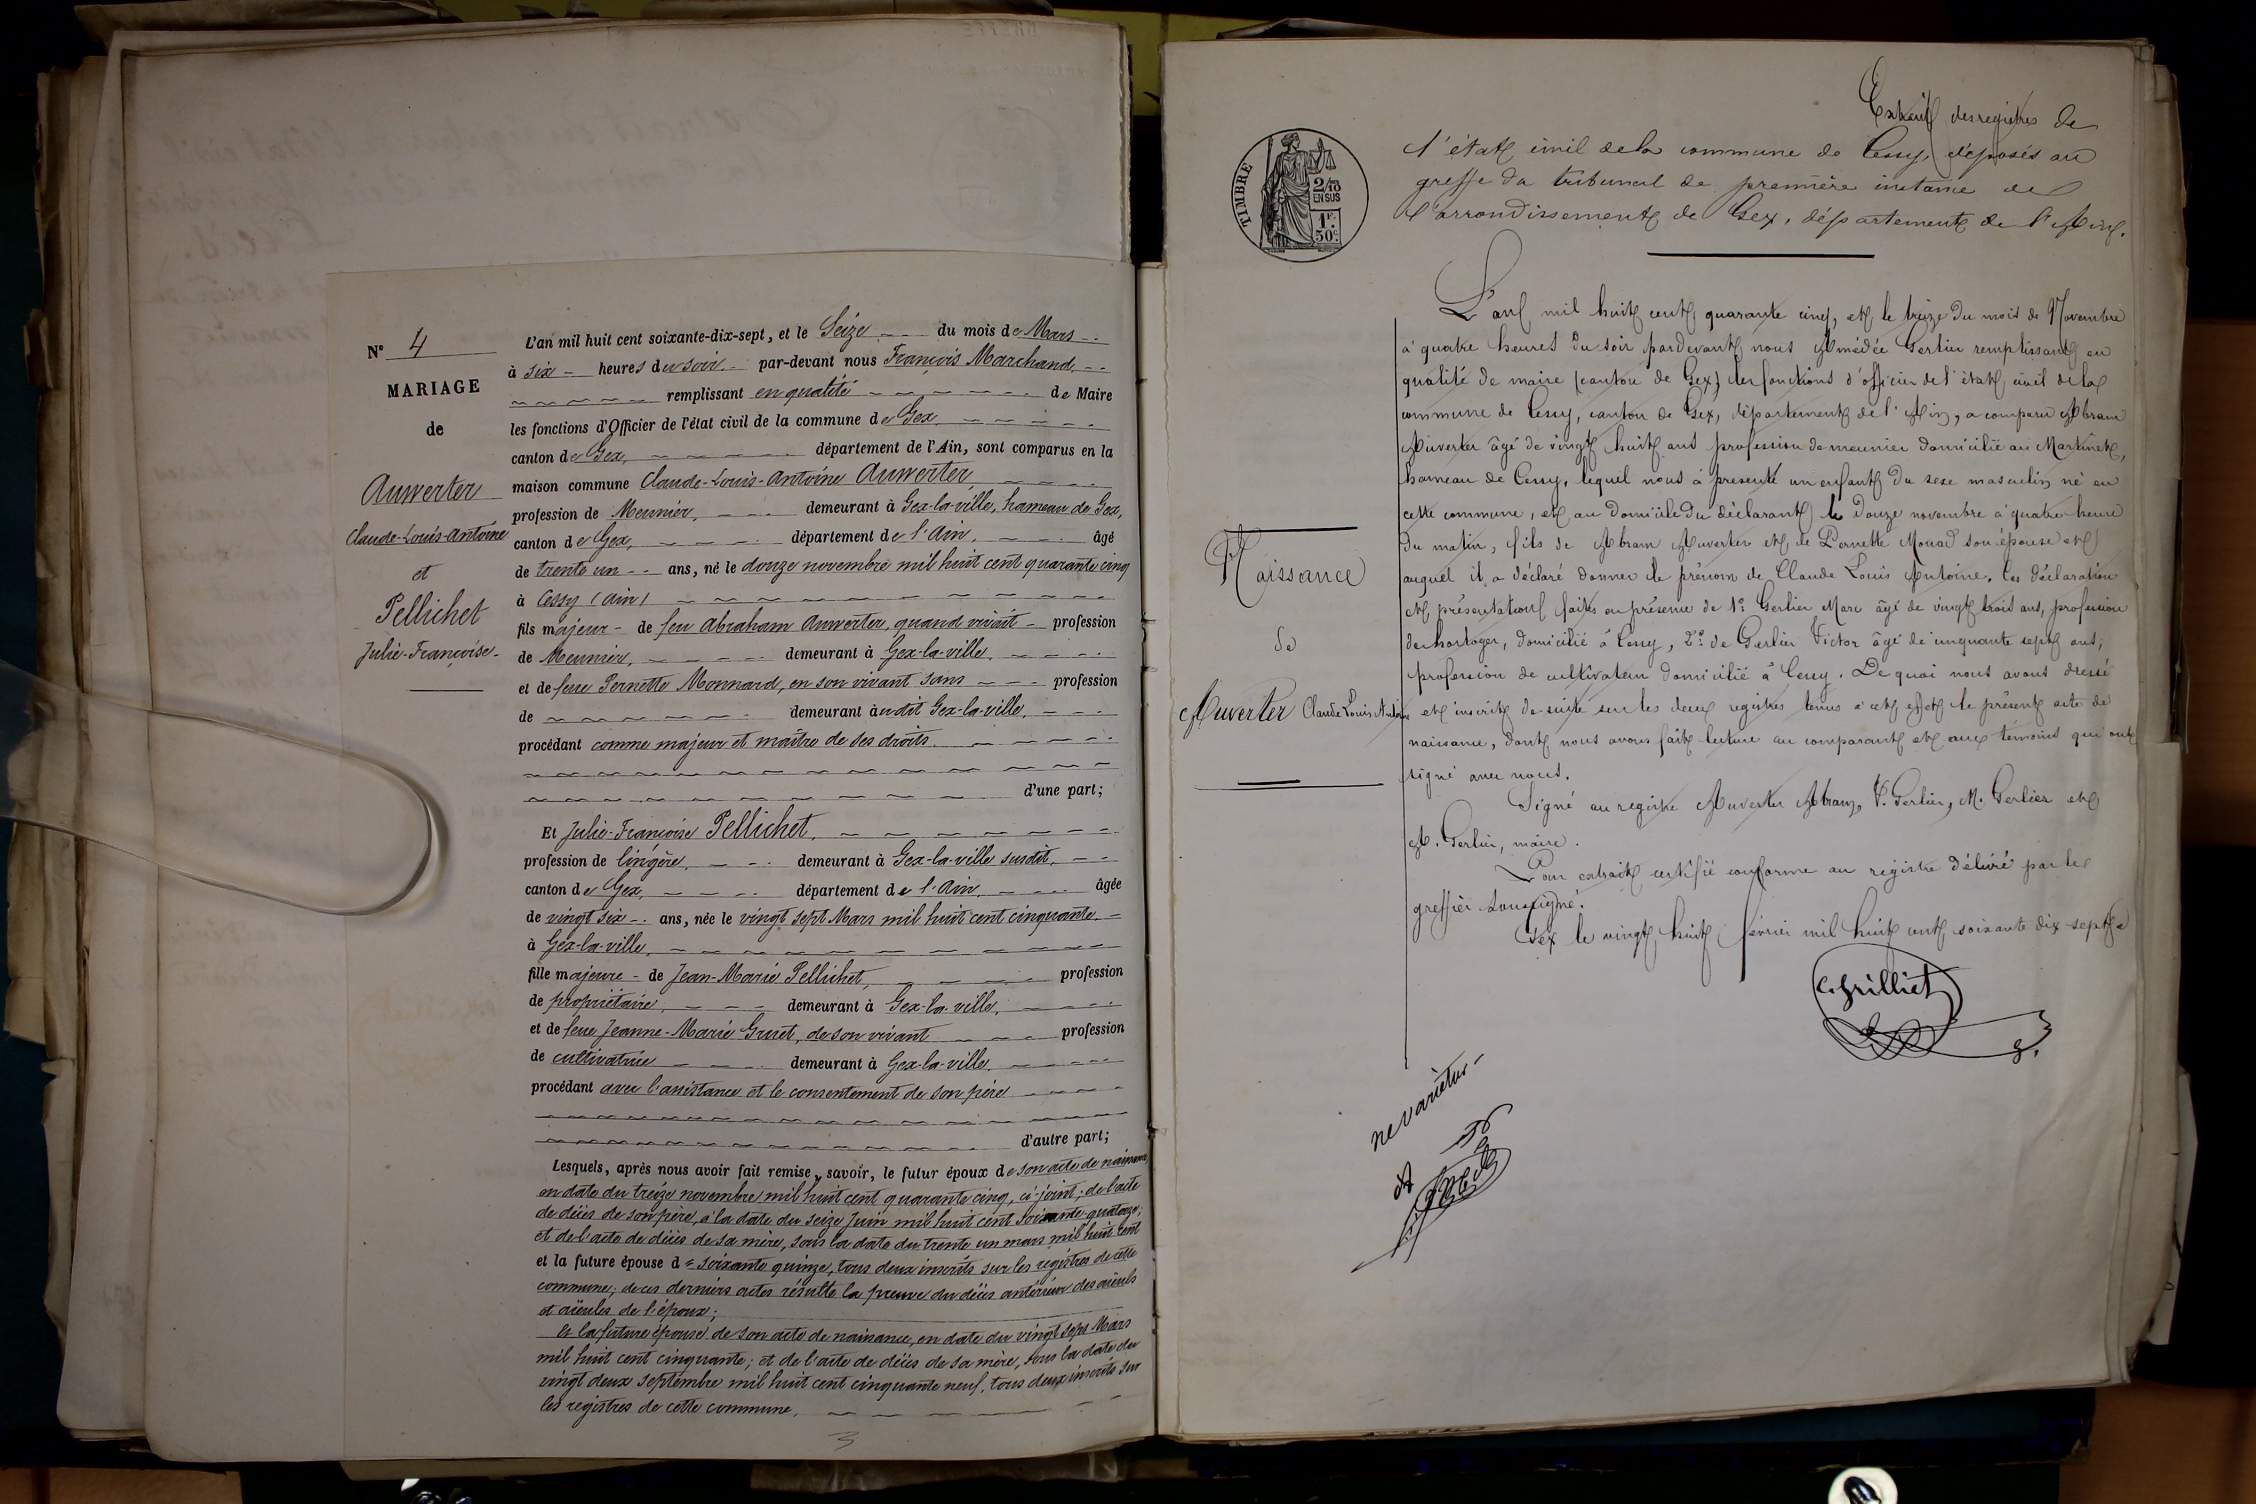 N° 4
MARIAGE
de
Auwerter
Claude-Louis-Antoine
et
Pellichet
Julie-Françoise
L'an mil huit cent soixante-dix-sept, et le Seize du mois de Mars
à six heures du soir par-devant nous François Marchand,
remplissant en qualité de Maire
les fonctions d'Officier de l'état civil de la commune de Gex
canton de Gex, département de l'Ain, sont comparus en la
maison commune Claude-Louis-Antoine Auwerter,
profession de Meunier, demeurant à Gex-la-ville, hameau de Gex,
canton de Gex, département de l'Ain, âgé
de trente un ans, né le douze novembre mil huit cent quarante cinq
à Cessy (Ain)
fils majeur de feu Abraham Auwerter, quand vivait profession
de Meunier, demeurant à Gex-la-ville,
et de feue Pernette Monnard, en son vivant sans profession
de demeurant audit Gex-la-ville,
procédant comme majeur et maître de ses droits
d'une part;
Et Julie-Françoise Pellichet,
profession de lingère, demeurant à Gex-la-ville susdit,
canton de Gex, département de l'Ain, âgée
de vingt six ans, née le vingt sept Mars mil huit cent cinquante
à Gex-la-ville,
fille majeure de Jean-Marie Pellichet, profession
de propriétaire, demeurant à Gex-la-ville,
et de feue Jeanne-Marie Gruet, de son vivant profession
de cultivatrice demeurant à Gex-la-ville.
procédant avec l'assistance et le consentement de son père
d'autre part;
Lesquels, après nous avoir fait remise, savoir, le futur époux de son acte de naissance
en date du treize novembre mil huit cent quarante cinq, ci-joint; de l'acte
de décès de son père, à la date du seize Juin mil huit cent soixante-quatorze;
et de l'acte de décès de sa mère, sous la date du trente un mars mil huit cent
et la future épouse d = soixante quinze, tous deux inscrits sur les registres de cette
commune; de ces derniers actes résulte la preuve du décès antérieur des aïeuls
et aïeules de l'époux;
Et la future épouse de son acte de naissance, en date du vingt sept Mars
mil huit cent cinquante; et de l'acte de décès de sa mère, sous la date du
vingt deux septembre mil huit cent cinquante neuf, tous deux inscrits sur
les registres de cette commune.
3
TIMBRE
2/10 EN SUS
1F. 50c.
Extrait des registres de
l'état civil de la commune de Cessy, déposés au
greffe du tribunal de première instance de
l'arrondissement de Gex, département de l'Ain.
Naissance
de
Auverter Claude Louis Antoine
L'an mil huit cent quarante cinq, et le treize du mois de Novembre
à quatre heures du soir pardevant nous Amédée Gerlier remplissant en
qualité de maire (canton de Gex) les fonctions d'officier de l'état civil de la
commune de Cessy, canton de Gex, département de l'Ain, a comparu Abram
Auverter âgé de vingt huit ans profession de meunier domicilié au Martinet,
hameau de Cessy, lequel nous a présenté un enfant du sexe masculin né en
cette commune, et au domicile du déclarant le douze novembre à quatre heure
du matin, fils de Abram Auverter et de Pernette Monad son épouse et
auquel il a déclaré donner le prénom de Claude Louis Antoine. Les déclaration
et présentation faites en présence de 1° Gerlier Marc âgé de vingt trois ans, profession
de horloger, domicilié à Cessy, 2° de Gerlier Victor âgé de cinquante sept ans,
profession de cultivateur domicilié à Cessy. De quoi nous avons dressé
et inscrit de suite sur les deux registres tenus à cet effet le présent acte de
naissance, dont nous avons fait lecture au comparant et aux témoins qui ont
signé avec nous.
Signé au registre Auverter Abram, V. Gerlier, M. Gerlier et
A. Gerlier, maire.
Pour extrait certifié conforme au registre délivré par le
greffier soussigné.
Gex le vingt huit février mil huit cent soixante dix sept
C. Grilliet
g.
ne varietur